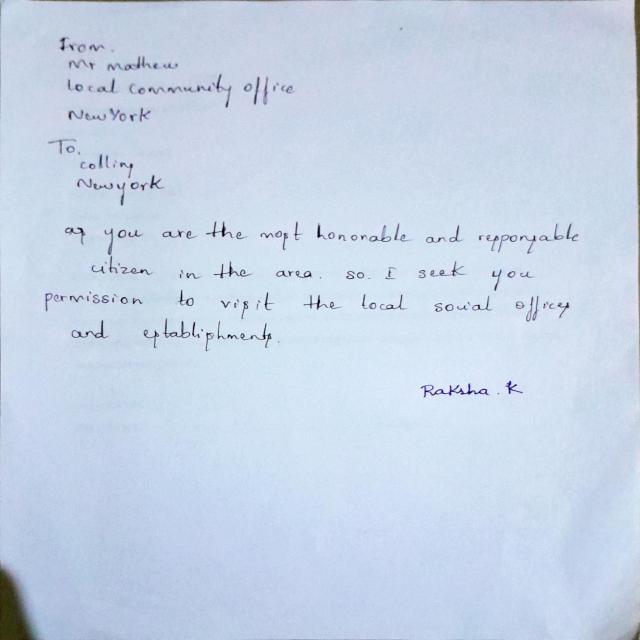 From.
Mr mathew
Local community office
New York
To,
collins
Newyork
as you are the most honorable and responsable
citizen in the area. so. I seek you
permission to visit the local social offices
and establishments.
Raksha. K